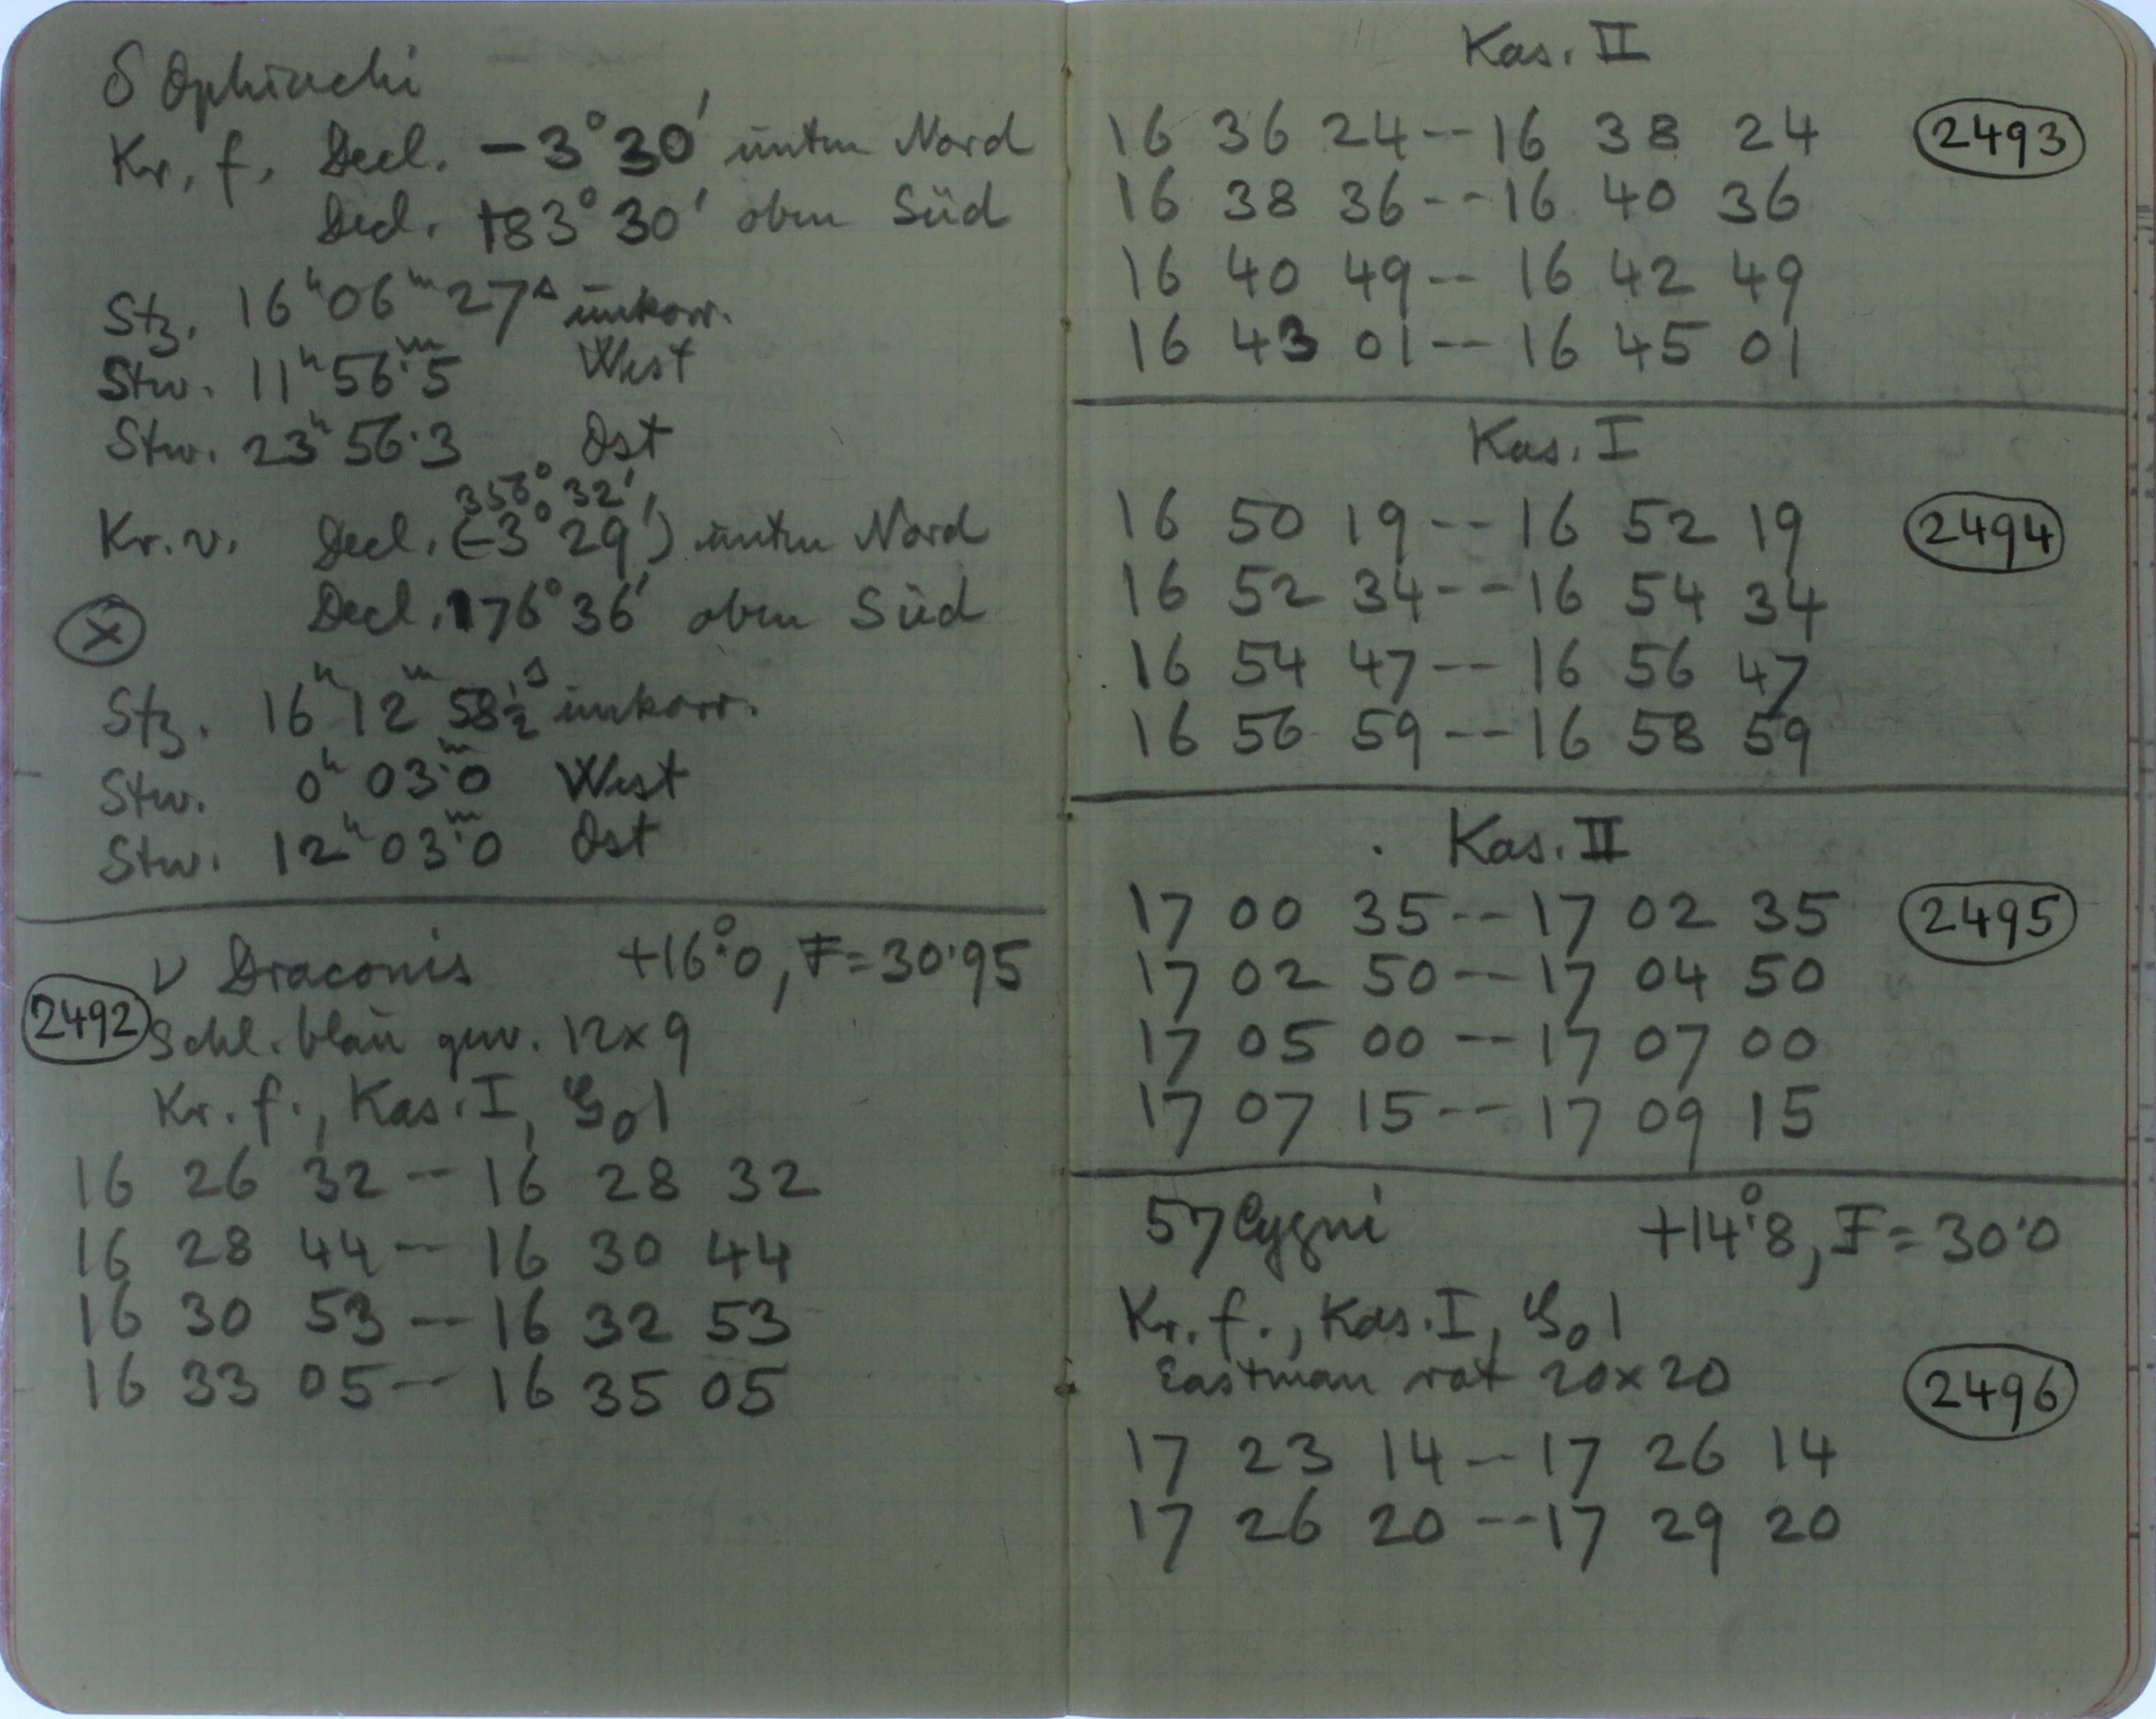 δ Ophiuchi
Kr. f. Decl. −3° 30′ unten Nord
Decl. +83° 30′ oben Süd
Stz. 16ʰ 06ᵐ 27ˢ unkorr.
Stw. 11ʰ 56ᵐ.5 West
Stw. 23ʰ 56.3 Ost
356° 32′
Kr. v. Decl. (−3° 29′) unten Nord
Decl. 176° 36′ oben Süd
x
Stz. 16ʰ 12ᵐ 58½ˢ unkorr.
Stw. 0ʰ 03ᵐ.0 West
Stw. 12ʰ 03ᵐ.0 Ost
ν Draconis +16°.0, F = 30.95
2492 Schl. blau gew. 12 x 9
Kr. f., Kas. I, 1
16 26 32 -- 16 28 32
16 28 44 -- 16 30 44
16 30 53 -- 16 32 53
16 33 05 -- 16 35 05
Kas. II
16 36 24 -- 16 38 24 2493
16 38 36 -- 16 40 36
16 40 49 -- 16 42 49
16 43 01 -- 16 45 01
Kas. I
16 50 19 -- 16 52 19 2494
16 52 34 -- 16 54 34
16 54 47 -- 16 56 47
16 56 59 -- 16 58 59
Kas. II
17 00 35 -- 17 02 35 2495
17 02 50 -- 17 04 50
17 05 00 -- 17 07 00
17 07 15 -- 17 09 15
57 Cygni +14°.8, F = 30.0
Kr. f., Kas. I, 1
Eastman rot 20 x 20
2496
17 23 14 -- 17 26 14
17 26 20 -- 17 29 20